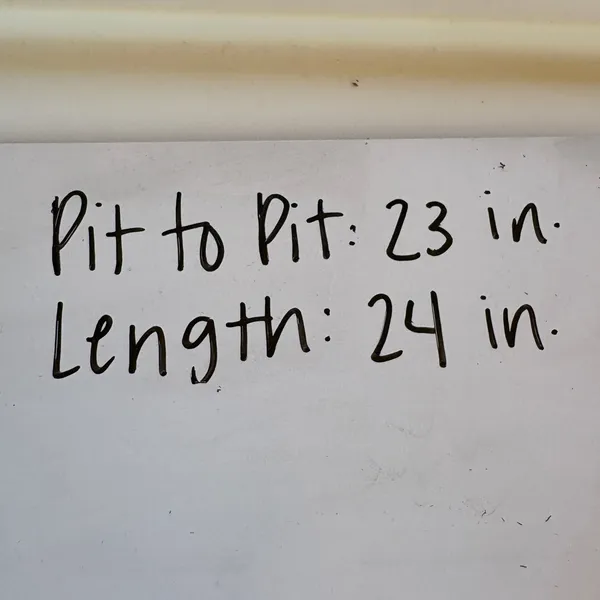 Pit to Pit: 23 in.
Length: 24 in.